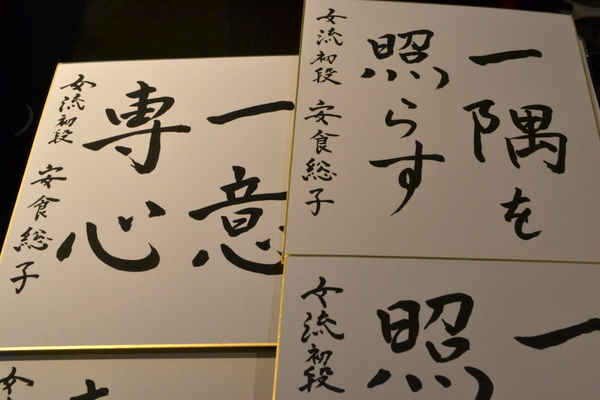 一意
専心
女流初段 安食総子
一隅を
照らす
女流初段 安食総子
一
照
女流初段